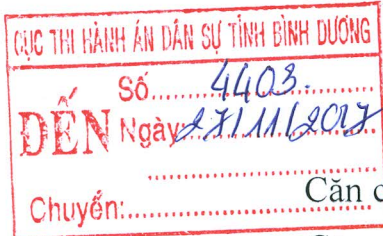 CỤC THI HÀNH ÁN DÂN SỰ TỈNH BÌNH DƯƠNG
Số.....4403.
ĐẾN Ngày:27/11/2017
Chuyển:..............
Căn c